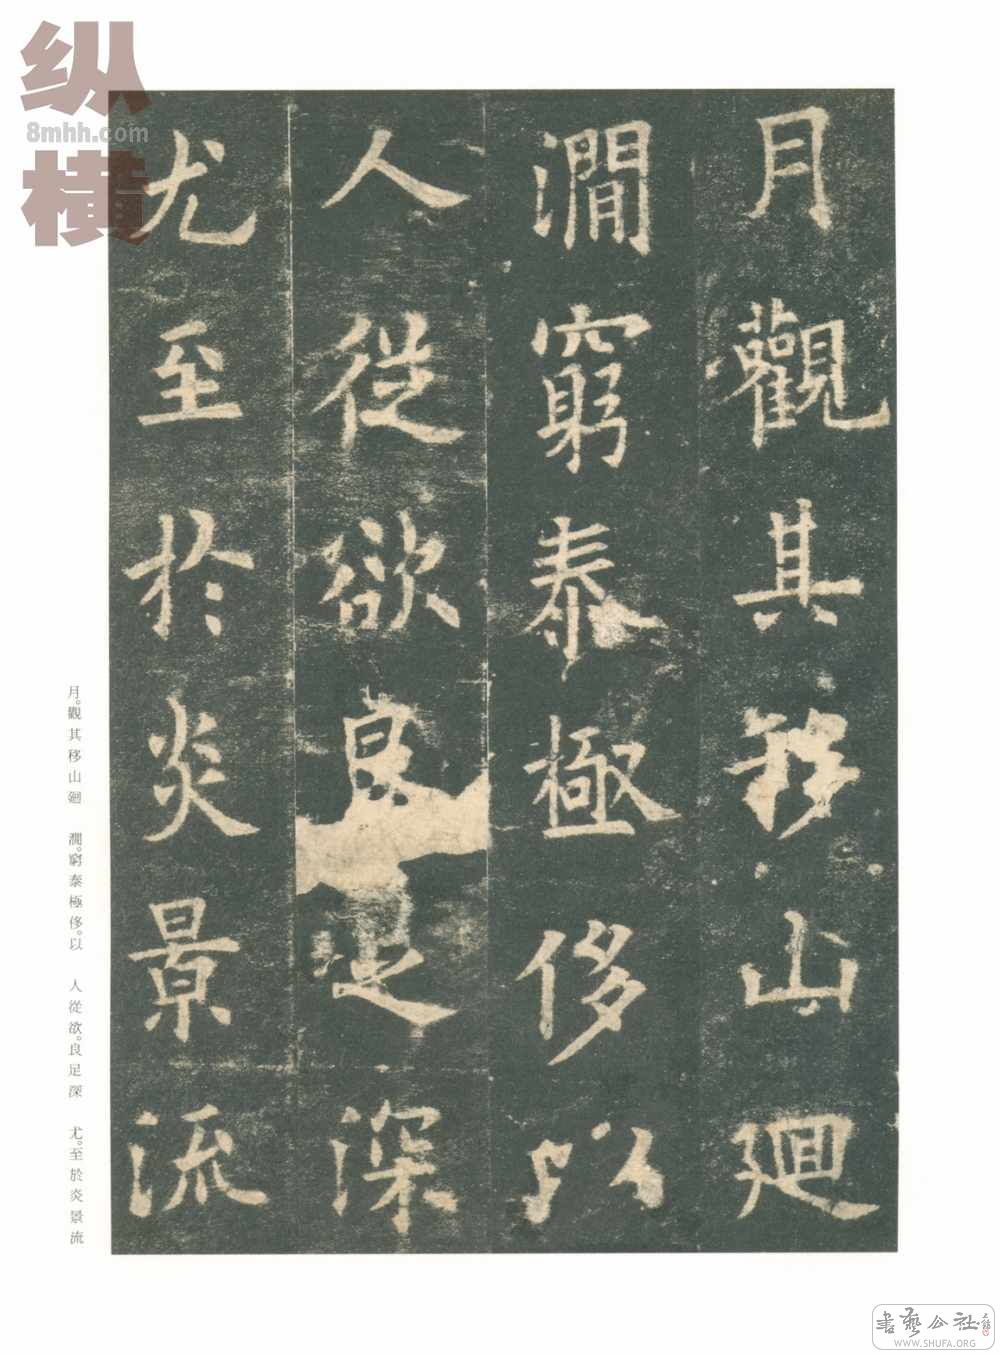 月觀其移山廻
澗窮泰極侈以
人從欲良足深
尤至於炎景流
月。觀其移山廻 澗。窮泰極侈。以 人從欲。良足深 尤。至於炎景流
纵横
8mhh.com
書藝公社
WWW.SHUFA.ORG